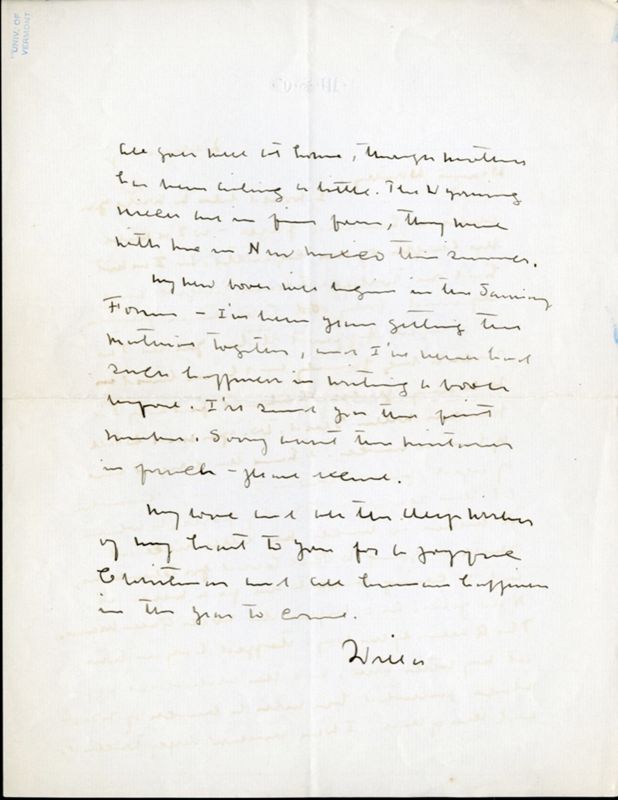 UNIV. OF
VERMONT
All goes well at home, though mother
has been ailing a little. The Wyoming
nieces are in fine form, they were
with me in New Mexico this summer.
My new book will begin in the January
Forum - I've been years getting the
material together, and I've never had
such happiness in writing a book
before. I'll send you the first
number. Sorry about the mistakes
in French -
My love and all the deep wishes
of my heart to you for a joyful
Christmas and all human happiness
in the year to come.
Willa